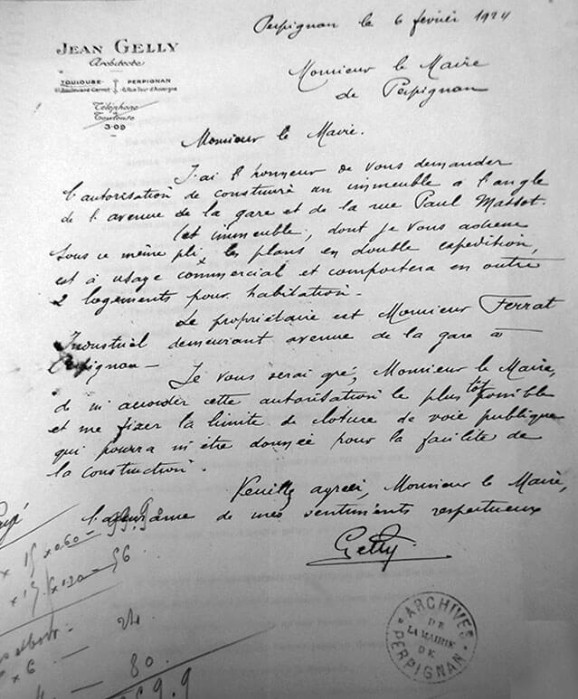 Perpignan le 6 février 1924
JEAN GELLY
Architecte
TOULOUSE PERPIGNAN
Boulevard Carnot
Téléphone
Toulouse
3-09
Monsieur le Maire
de Perpignan
Monsieur le Maire.
J'ai l'honneur de vous demander
l'autorisation de construire un immeuble à l'angle
de l'avenue de la gare et de la rue Paul Massot.
Cet immeuble, dont je vous adresse
sous ce même pli les plans en double expédition,
est à usage commercial et comportera en outre
2 logements pour habitation.
Le propriétaire est Monsieur Ferrat
Industriel demeurant avenue de la gare à
Perpignan—
Je vous serai gré, Monsieur le Maire,
de m'accorder cette autorisation le plus tôt possible
et me fixer la limite de cloture de voie publique
qui pourra m'être donnée pour la facilité de
la construction.
Veuillez agréer, Monsieur le Maire,
de mes sentiments respectueux
Gelly
56
24
6
80
69.9
ARCHIVES
DE
LA MAIRIE
DE
PERPIGNAN